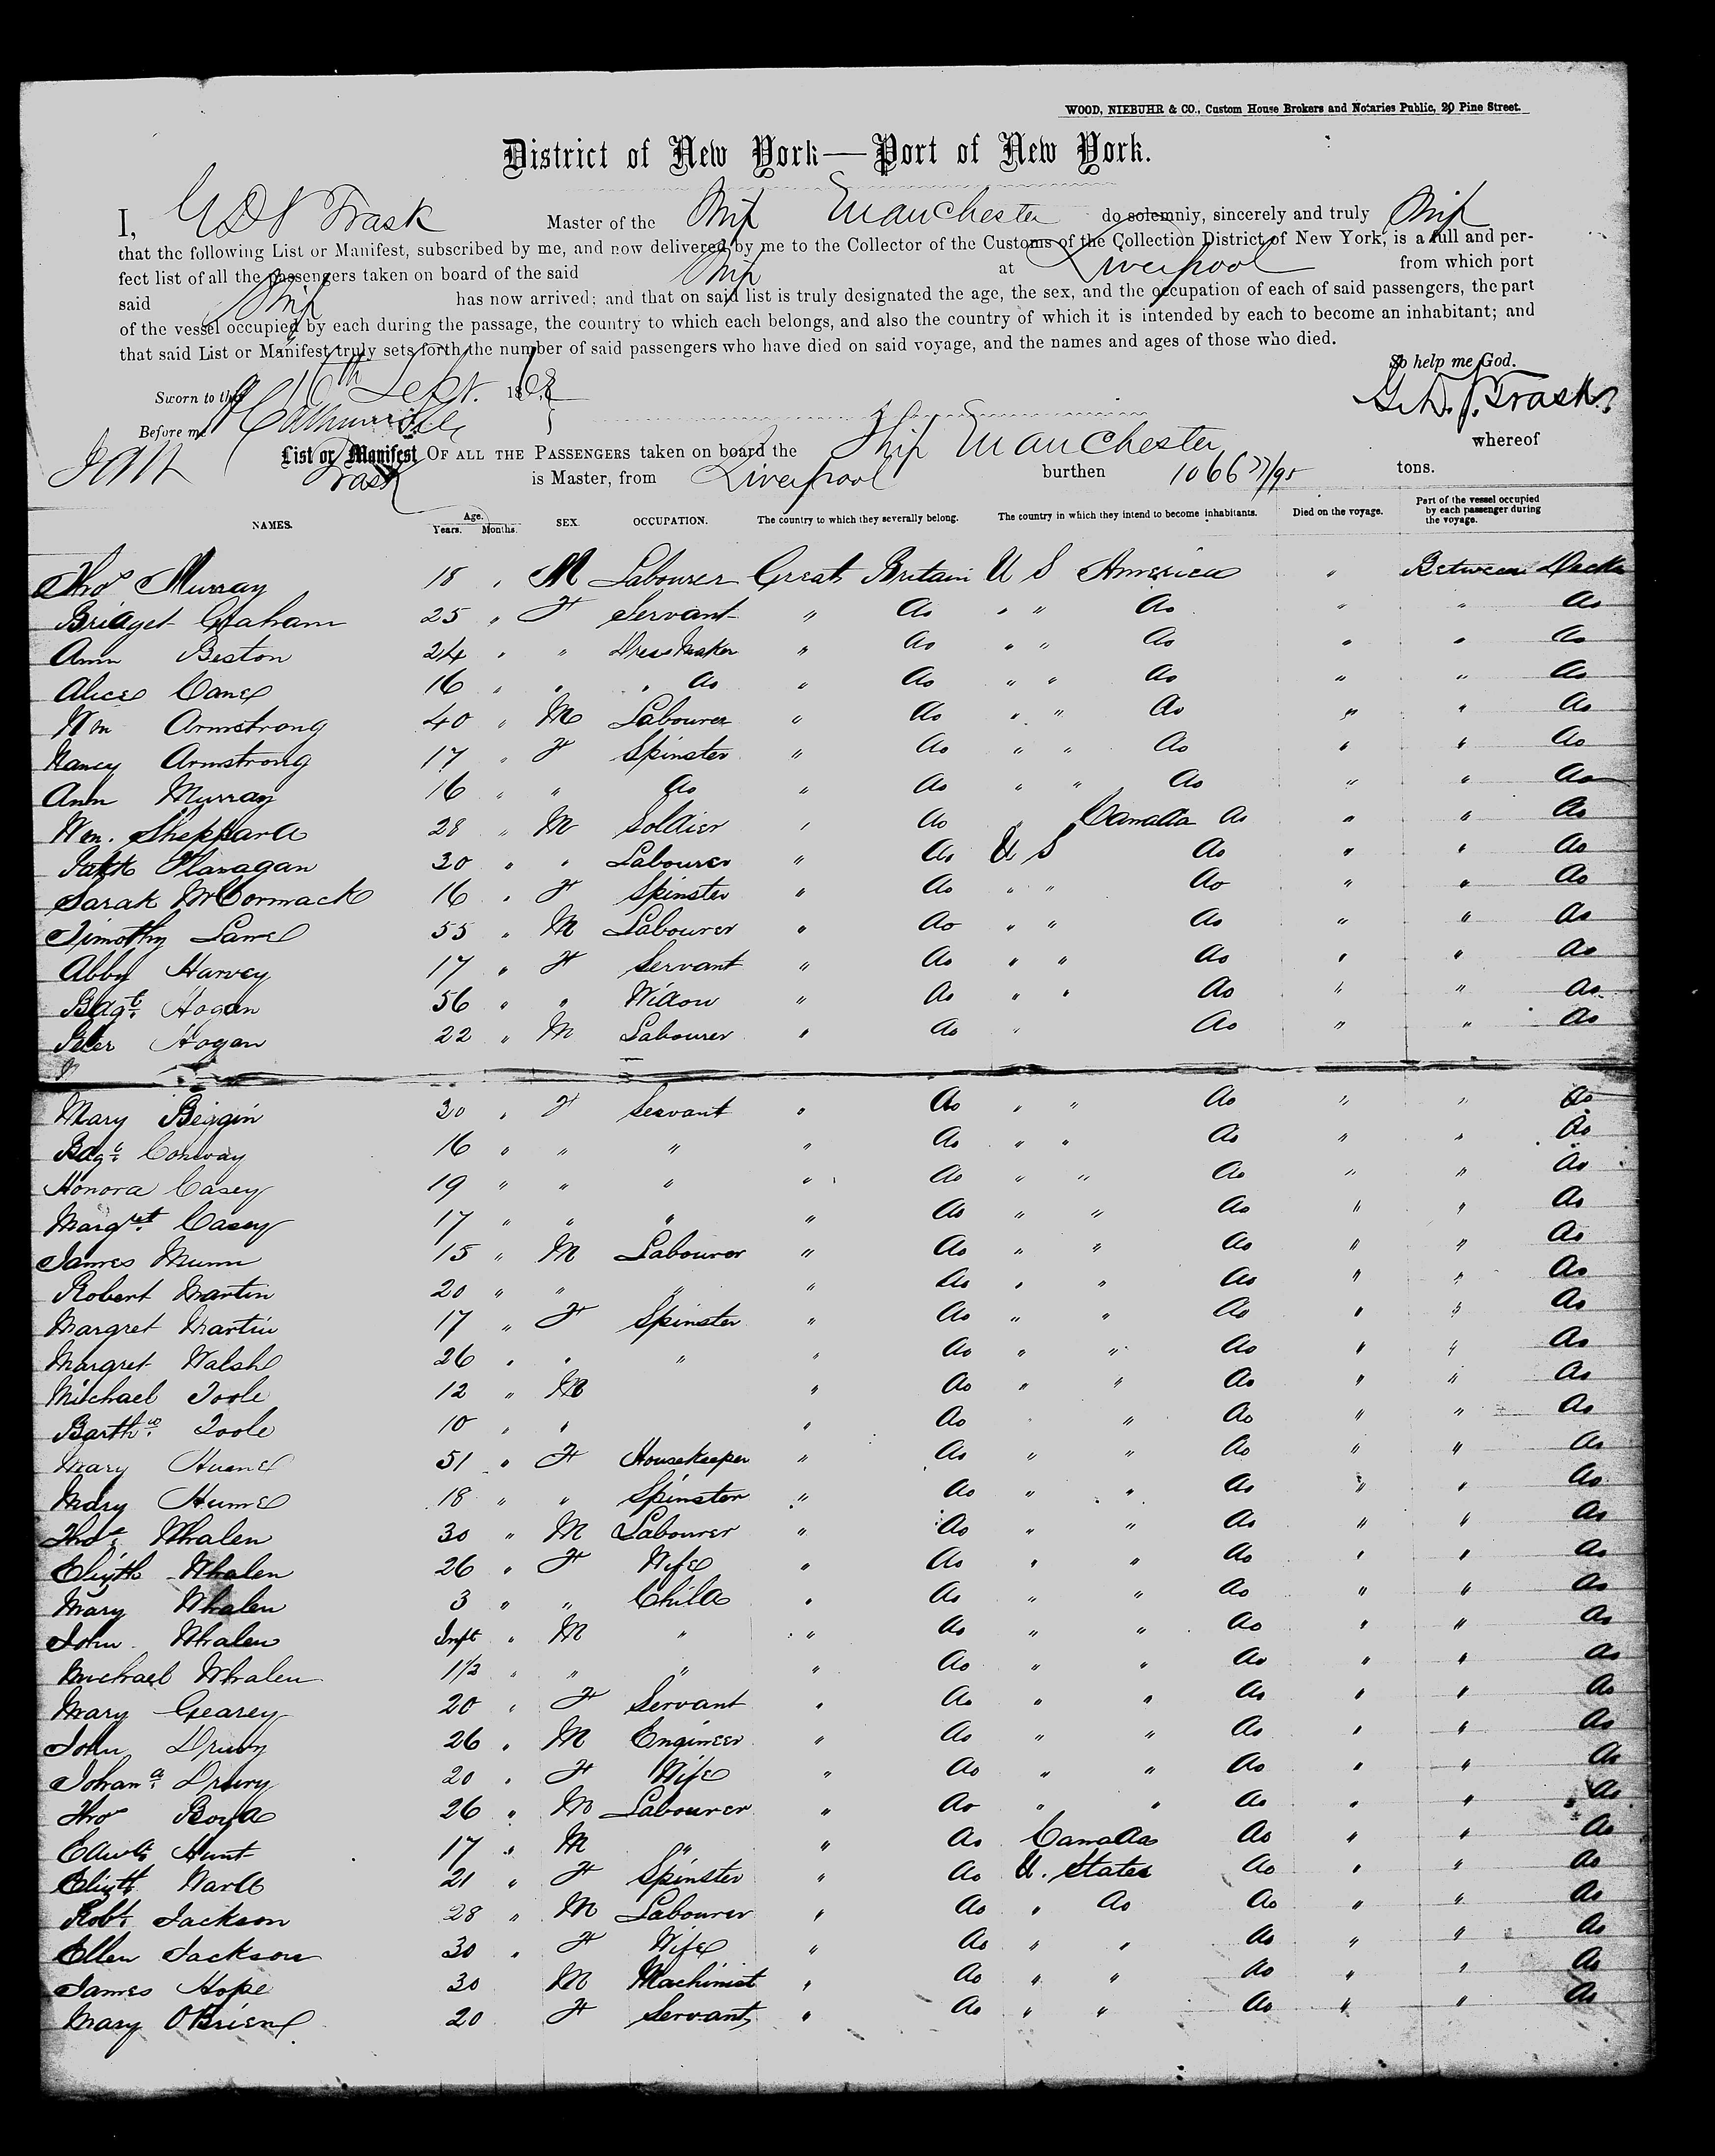 WOOD, NIEBUHR & CO., Custom House Brokers and Notaries Public, 20 Pine Street.
District of New York—Port of New York.
I, G D S Trask Master of the Ship Manchester do solemnly, sincerely and truly
that the following List or Manifest, subscribed by me, and now delivered by me to the Collector of the Customs of the Collection District of New York, is a full and per-
fect list of all the passengers taken on board of the said Ship at Liverpool from which port
said Ship has now arrived; and that on said list is truly designated the age, the sex, and the occupation of each of said passengers, the part
of the vessel occupied by each during the passage, the country to which each belongs, and also the country of which it is intended by each to become an inhabitant; and
that said List or Manifest truly sets forth the number of said passengers who have died on said voyage, and the names and ages of those who died.
So help me God.
Sworn to this 16th Sept. 186 G. D. S. Trask
Before me
List or Manifest OF ALL THE PASSENGERS taken on board the Ship Manchester whereof
Trask is Master, from Liverpool burthen 1066 77/95 tons.
NAMES. Age. Years. Months. SEX. OCCUPATION. The country to which they severally belong. The country in which they intend to become inhabitants. Died on the voyage. Part of the vessel occupied by each passenger during the voyage.
Thos Murray 18 " M Labourer Great Britain U S America " Between Decks
Bridget Graham 25 " F Servant " do " " do " " do
Ann Beston 24 " " Dress Maker " do " " do " " do
Alice Cane 16 " " " do " do " " do " " do
Wm Armstrong 40 " M Labourer " do " " do " " do
Nancy Armstrong 17 " F Spinster " do " " do " " do
Ann Murray 16 " " do " do " " do " " do
Wm. Sheppard 28 " M Soldier " do " Canada do " " do
Patk Flanagan 30 " " Labourer " do U S do " " do
Sarah McCormack 16 " F Spinster " do " " do " " do
Timothy Lane 55 " M Labourer " do " " do " " do
Abby Harvey 17 " F Servant " do " " do " " do
Bdgt. Hogan 56 " " Widow " do " " do " " do
Peter Hogan 22 " M Labourer " do " do " " do
Mary Beggin 30 " F Servant " do " " do " " do
Bdgt. Conway 16 " " " " do " " do " " do
Honora Casey 19 " " " " do " " do " " do
Margret. Casey 17 " " " " do " " do " " do
James Munn 15 " M Labourer " do " " do " " do
Robert Martin 20 " " " " do " " do " " do
Margret Martin 17 " F Spinster " do " " do " " do
Margret Walsh 26 " " " " do " " do " " do
Michael Toole 12 " M " do " " do " " do
Barthw. Toole 10 " " " do " " do " " do
Mary Hume 51 " F Housekeeper " do " " do " " do
Mary Hume 18 " " Spinster " do " " do " " do
Thos. Whalen 30 " M Labourer " do " " do " " do
Elizth Whalen 26 " F Wife " do " " do " " do
Mary Whalen 3 " " Child " do " " do " " do
John Whalen Inft " M " " do " " do " " do
Michael Whalen 1½ " " " " do " " do " " do
Mary Gearey 20 " F Servant " do " " do " " do
John Drury 26 " M Engineer " do " " do " " do
Johana. Drury 20 " F Wife " do " " do " " do
Thos Boyd 26 " M Labourer " do " " do " " do
Edwd. Hunt 17 " M " " do Canada do " " do
Elizth Ward 21 " F Spinster " do U. States do " " do
Robt. Jackson 28 " M Labourer " do " do do " " do
Ellen Jackson 30 " F Wife " do " " do " " do
James Hope 30 M Machinist " do " " do " " do
Mary OBrien 20 F Servant " do " " do " " do